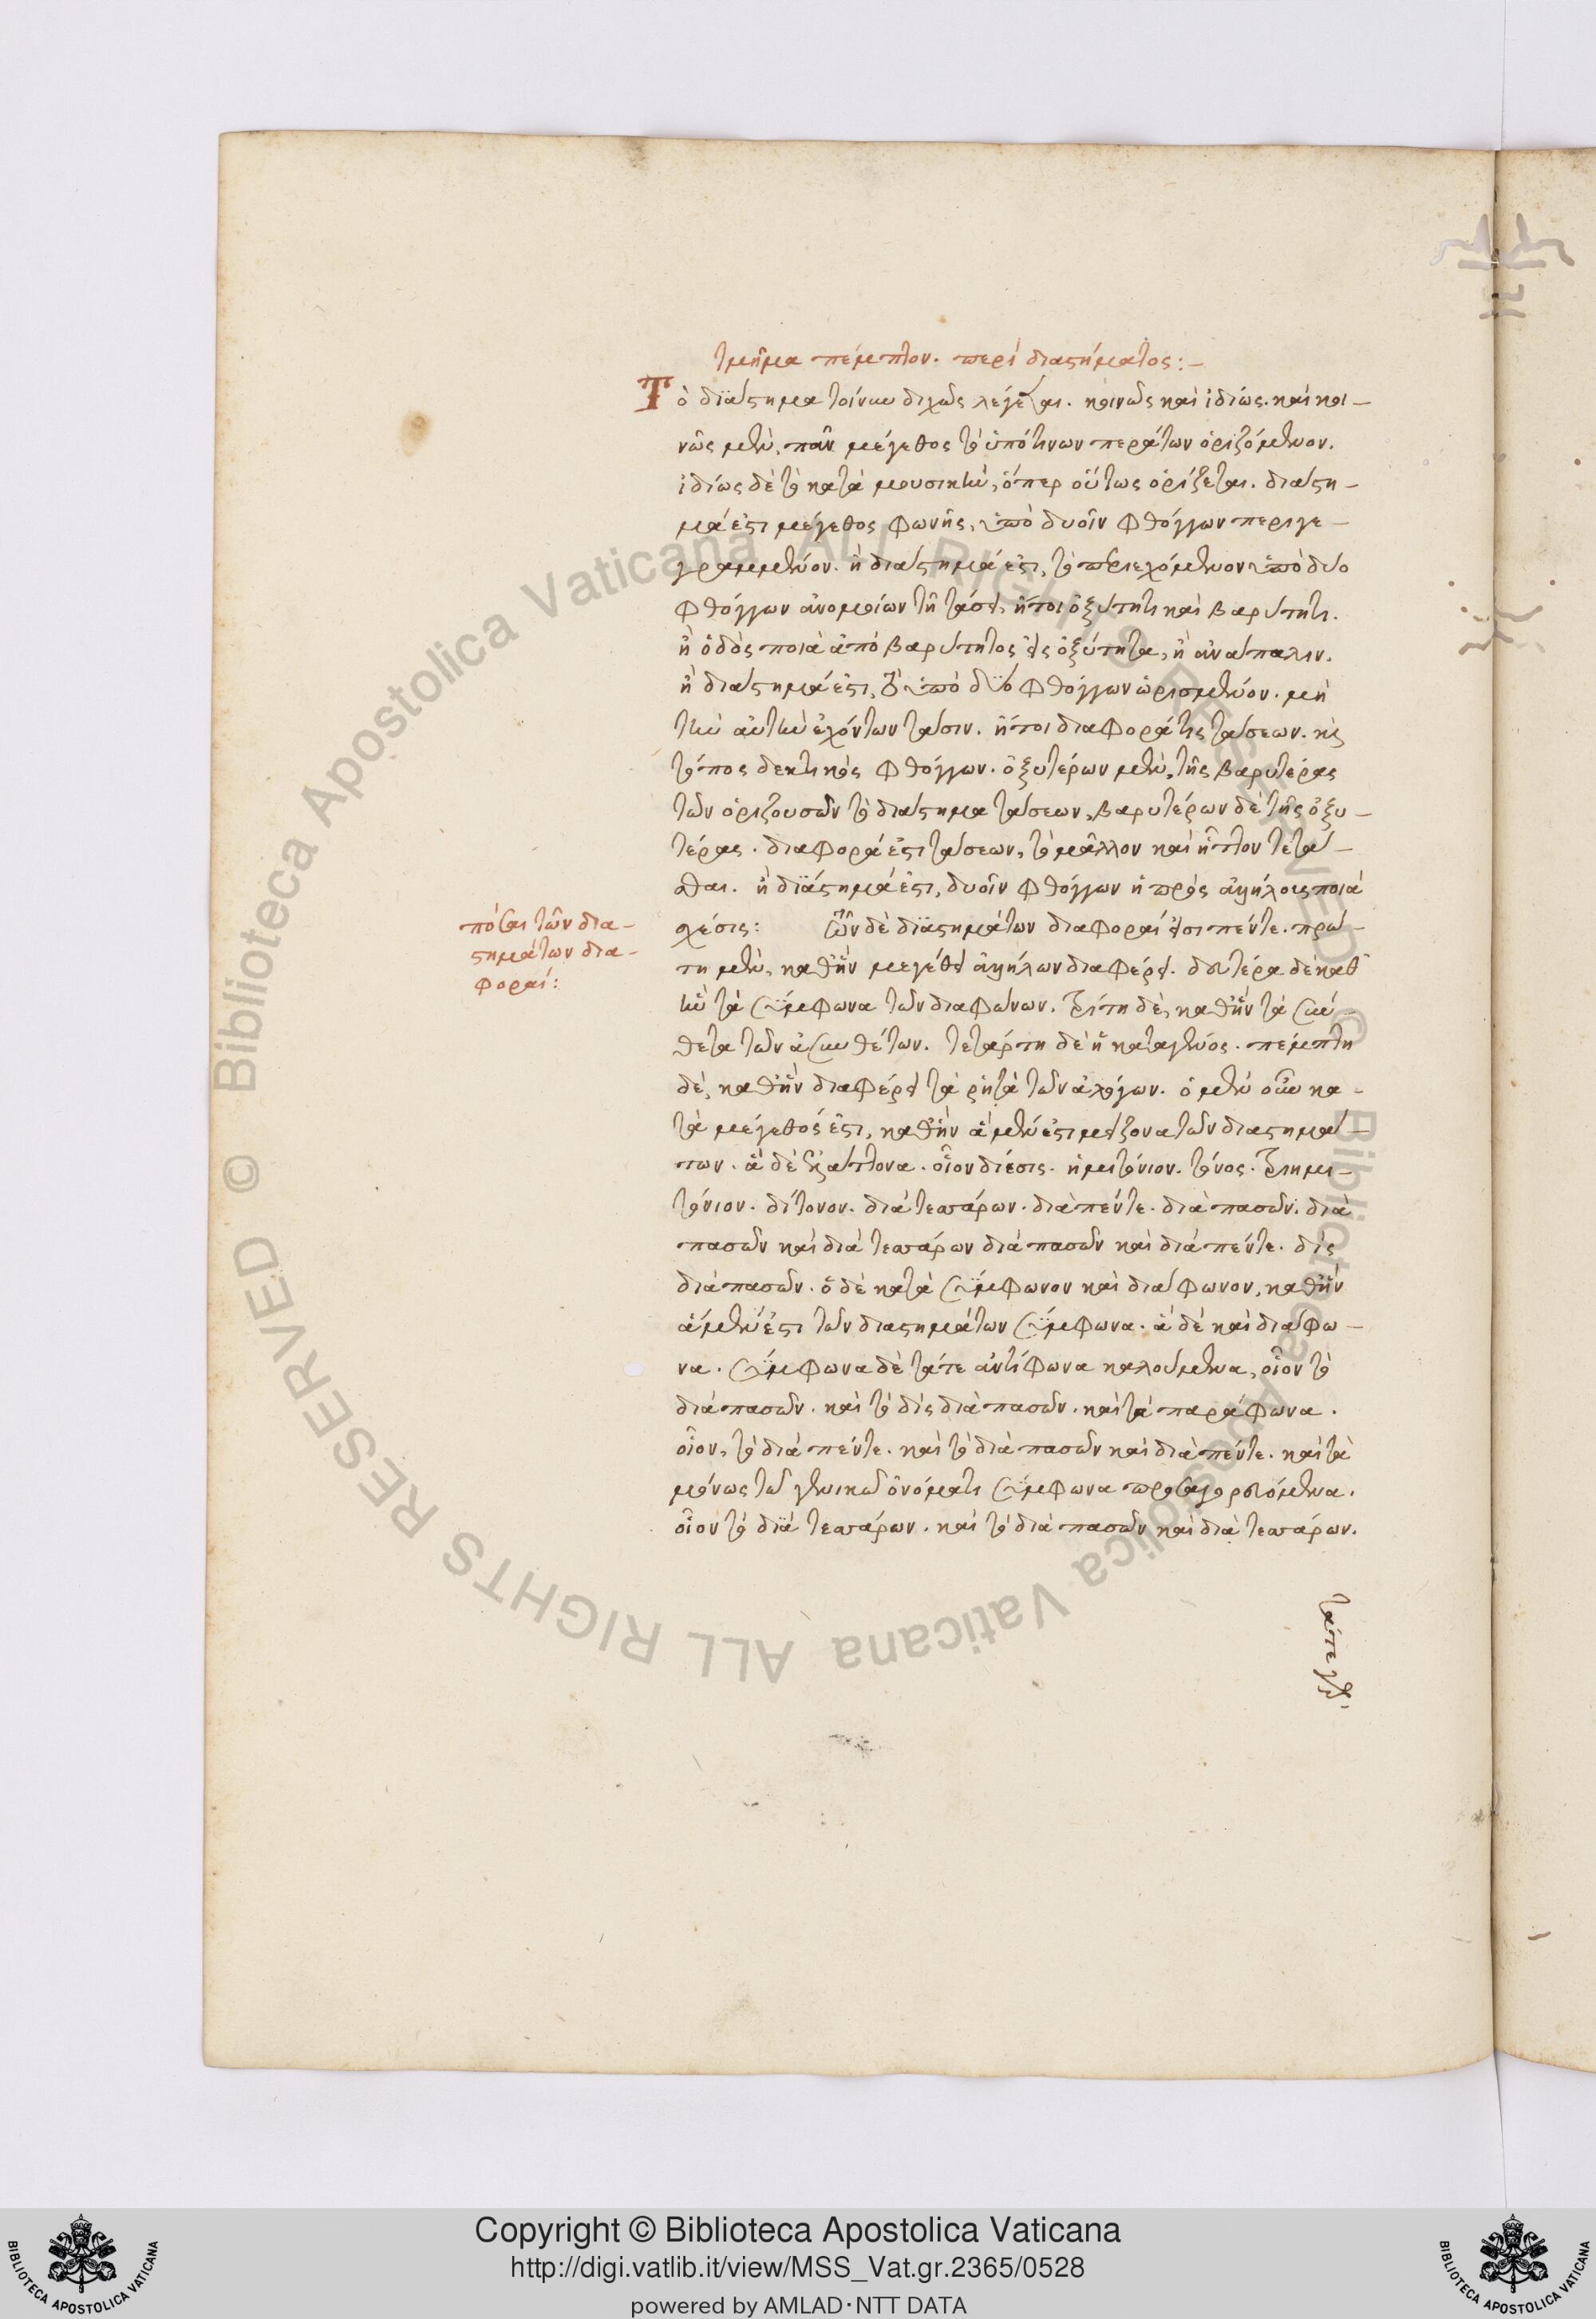 τμῆμα πέμπτον. περὶ διαστήματος:–
Τὸ διάστημα τοίνυν διχῶς λέγεται. κοινῶς καὶ ἰδίως. καὶ κοι–
νῶς μὲν, πᾶν μέγεθος τὸ ὑπό τινων περάτων ὁριζόμενον.
ἰδίως δὲ τὸ κατὰ μουσικὴν, ὅπερ οὕτως ὁρίζεται. διάστη–
μά ἐστι μέγεθος φωνῆς, ὑπὸ δυοῖν φθόγγων περιγε–
γραμμένον. ἢ διάστημά ἐστι, τὸ περιεχόμενον ὑπὸ δύο
φθόγγων ἀνομοίων τῇ τάσει, ἤτοι ὀξύτητι καὶ βαρύτητι.
ἢ ὁδὸς ποιὰ ἀπὸ βαρύτητος εἰς ὀξύτητα, ἢ ἀνάπαλιν.
ἢ διάστημά ἐστι, τὸ ὑπὸ δύο φθόγγων ὡρισμένον. μὴ
τὴν αὐτὴν ἐχόντων τάσιν. ἤτοι διαφορά τις τάσεων. καὶ
τόπος δεκτικὸς φθόγγων. ὀξυτέρων μὲν, τῆς βαρυτέρας
τῶν ὁριζουσῶν τὸ διάστημα τάσεων, βαρυτέρων δὲ τῆς ὀξυ–
τέρας. διαφορά ἐστι τάσεων, τὸ μᾶλλον καὶ ἧττον τετά–
σθαι. ἢ διάστημά ἐστι, δυοῖν φθόγγων ἡ πρὸς ἀλλήλους ποιὰ
πόσαι τῶν δια–
στημάτων δια–
φοραί:
σχέσις: Τῶν δὲ διαστημάτων διαφοραί εἰσι πέντε. πρώ–
τη μὲν, καθ' ἣν μεγέθει ἀλλήλων διαφέρει. δευτέρα δὲ καθ'
ἣν τὰ σύμφωνα τῶν διαφώνων. τρίτη δὲ, καθ' ἣν τὰ σύν–
θετα τῶν ἀσυνθέτων. τετάρτη δὲ ἡ κατὰ γένος. πέμπτη
δὲ, καθ' ἣν διαφέρει τὰ ῥητὰ τῶν ἀλόγων. ὁ μὲν οὖν κα–
τὰ μέγεθός ἐστι, καθ' ἣν ἃ μέν ἐστι μείζονα τῶν διαστημά–
των. ἃ δὲ ἐλάττονα. οἷον δίεσις. ἡμιτόνιον. τόνος. τριημι–
τόνιον. δίτονον. διὰ τεσσάρων. διὰ πέντε. διὰ πασῶν. διὰ
πασῶν καὶ διὰ τεσσάρων διὰ πασῶν καὶ διὰ πέντε. δὶς
διὰ πασῶν. ὁ δὲ κατὰ σύμφωνον καὶ διάφωνον, καθ' ἣν
ἃ μέν ἐστι τῶν διαστημάτων σύμφωνα. ἃ δὲ καὶ διάφω–
να. σύμφωνα δὲ τά τε ἀντίφωνα καλούμενα, οἷον τὸ
διὰ πασῶν. καὶ τὸ δὶς διὰ πασῶν. καὶ τὰ παράφωνα.
οἷον, τὸ διὰ πέντε. καὶ τὸ διὰ πασῶν καὶ διὰ πέντε. καὶ τὰ
μόνως τῷ γενικῷ ὀνόματι σύμφωνα προσαγορευόμενα.
οἷον τὸ διὰ τεσσάρων. καὶ τὸ διὰ πασῶν καὶ διὰ τεσσάρων.
τά τε
© Biblioteca Apostolica Vaticana ALL RIGHTS RESERVED
© Biblioteca Apostolica Vaticana ALL RIGHTS RESERVED
Copyright © Biblioteca Apostolica Vaticana
http://digi.vatlib.it/view/MSS_Vat.gr.2365/0528
powered by AMLAD·NTT DATA
BIBLIOTECA APOSTOLICA VATICANA
BIBLIOTECA APOSTOLICA VATICANA